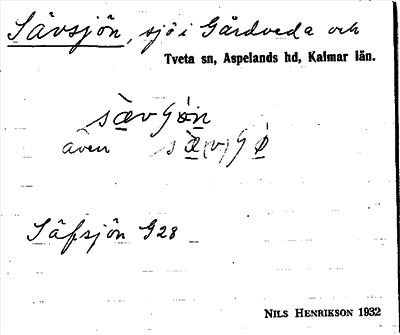 Sävsjön, sjö i Gårdveda och
Tveta sn, Aspelands hd, Kalmar län.
sæ̀vGø̀n
även sæ̀(v)Gø̀
Säfsjön G28
NILS HENRIKSON 1932